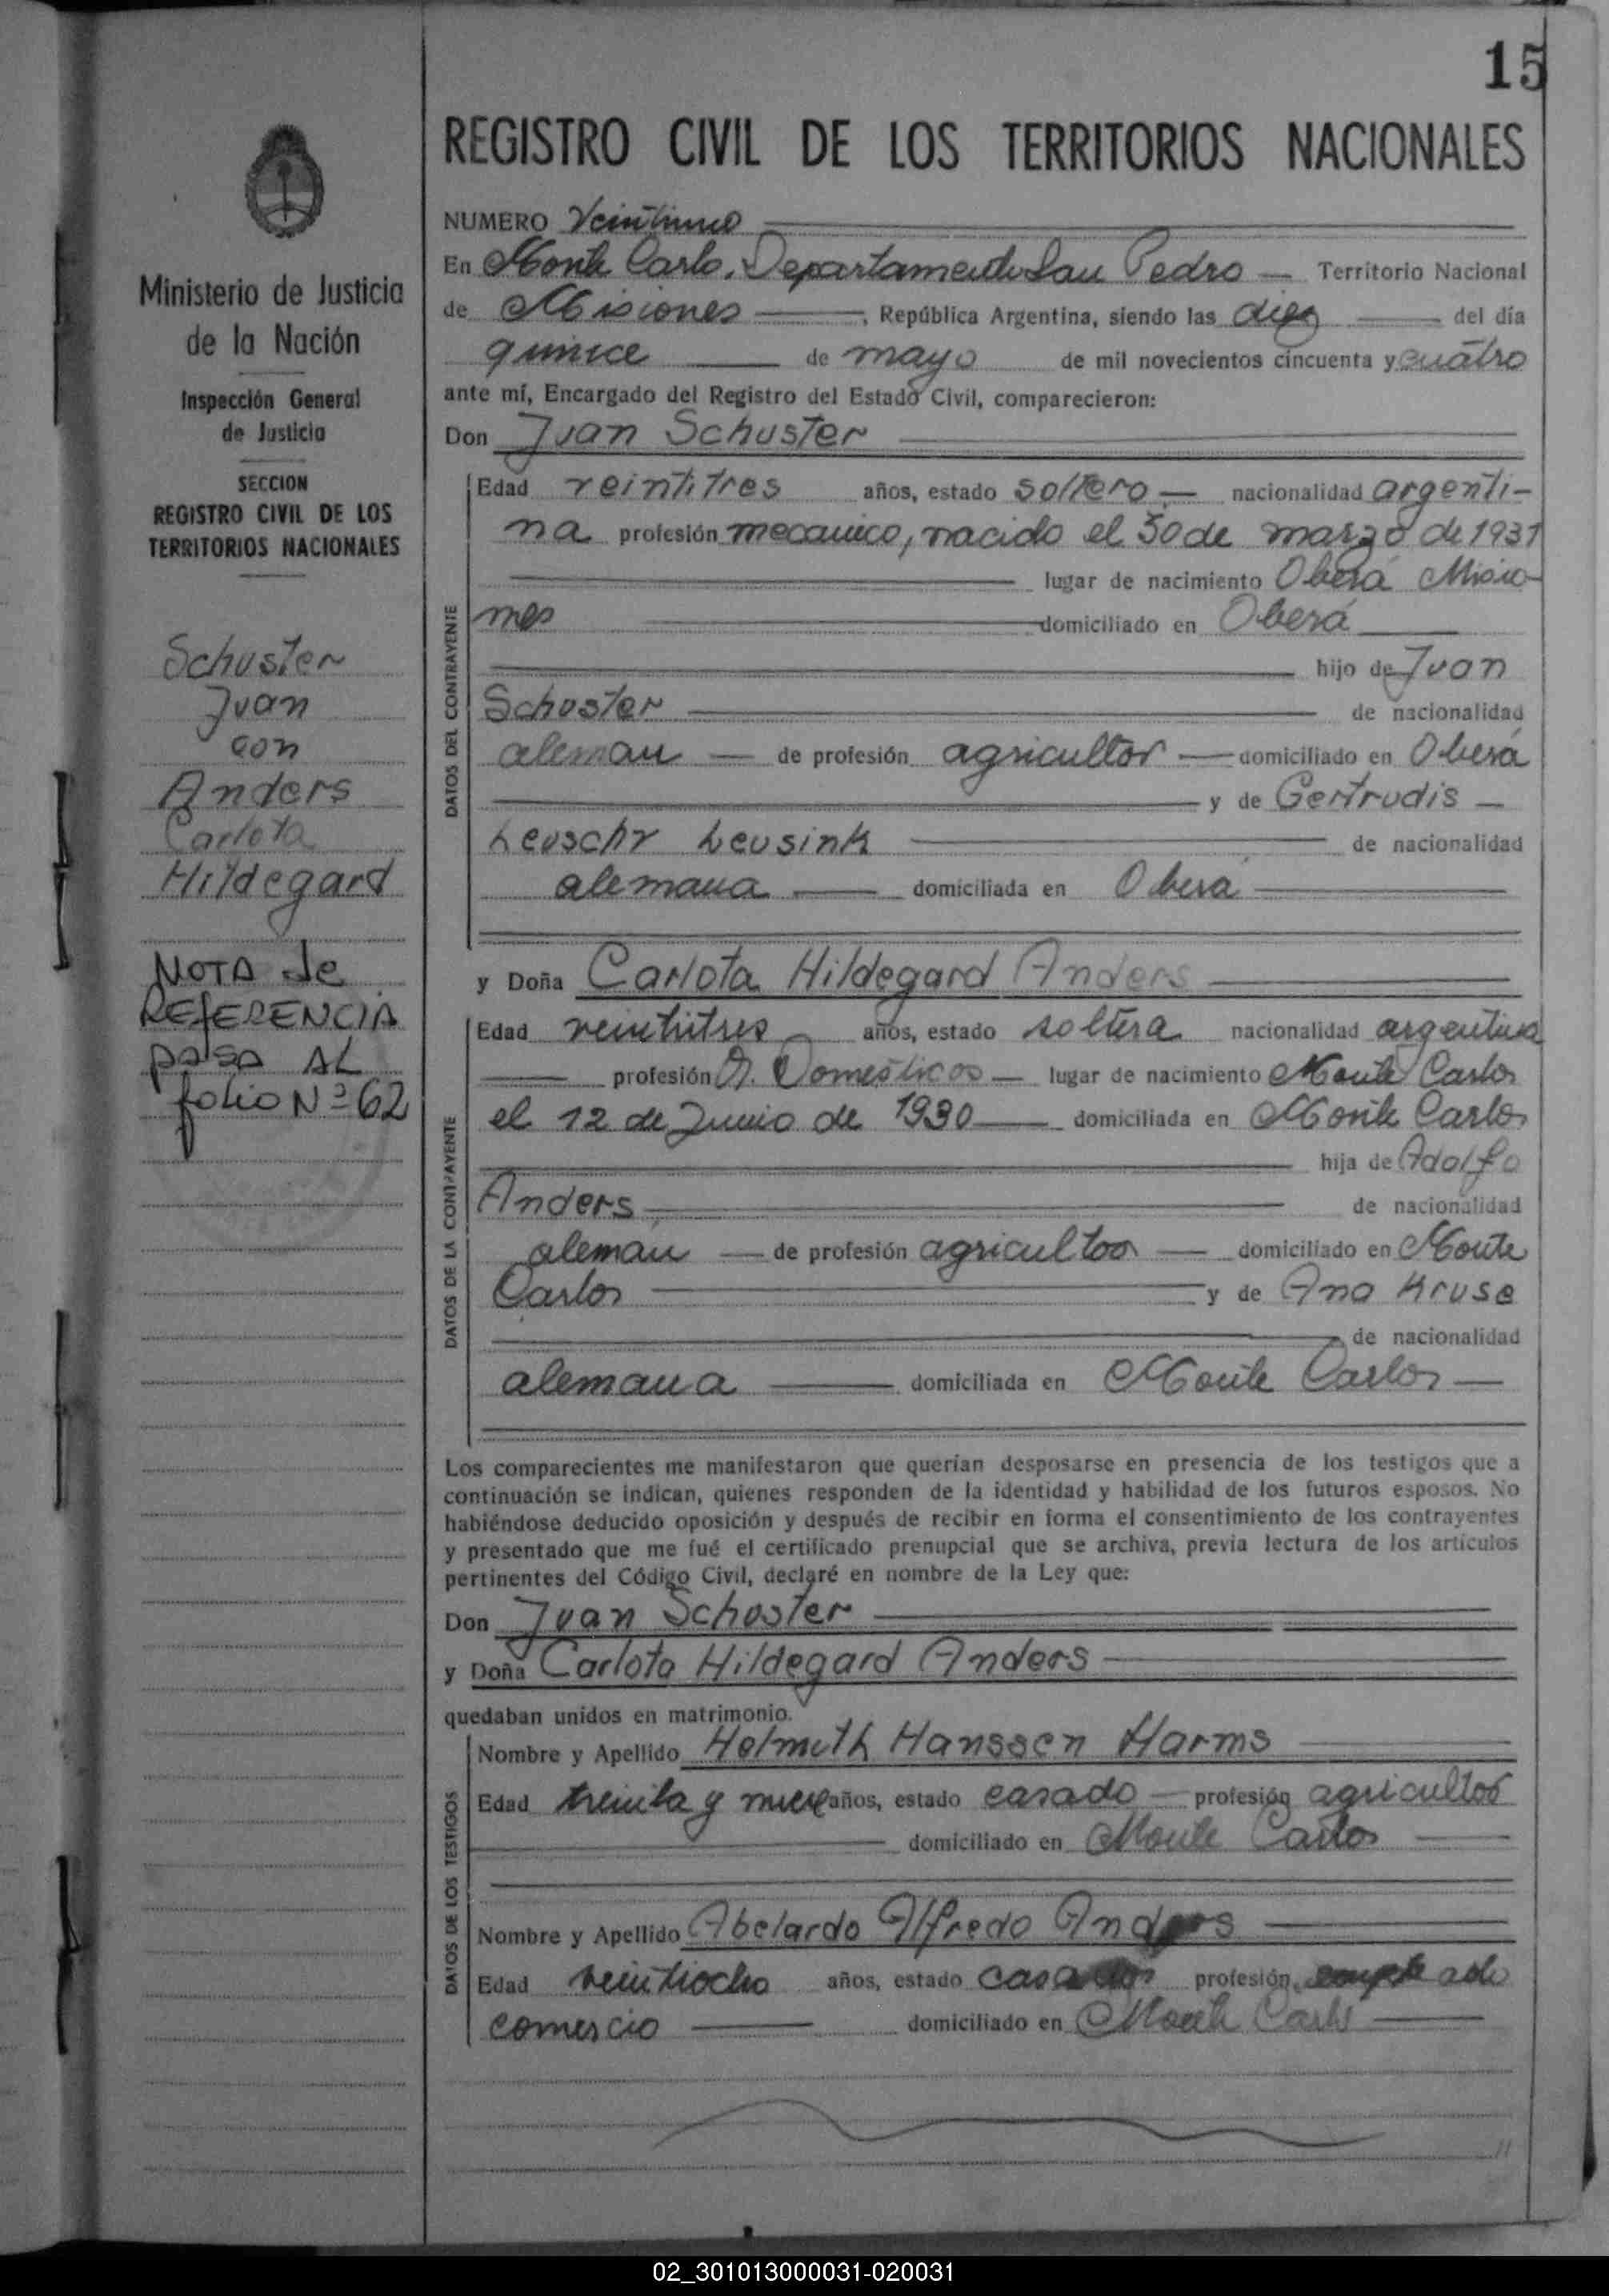 15
REGISTRO CIVIL DE LOS TERRITORIOS NACIONALES
Ministerio de Justicia
de la Nación
Inspección General
de Justicia
SECCION
REGISTRO CIVIL DE LOS
TERRITORIOS NACIONALES
Schuster
Juan
con
Anders
Carlota
Hildegard
NOTA de
REFERENCIA
pasa AL
folio Nº 62
NUMERO Veintiuno
En Monte Carlo, Departamento San Pedro — Territorio Nacional
de Misiones —, República Argentina, siendo las diez — del día
quince — de mayo de mil novecientos cincuenta y cuatro
ante mí, Encargado del Registro del Estado Civil, comparecieron:
Don Juan Schuster
DATOS DEL CONTRAYENTE
Edad veintitres años, estado soltero — nacionalidad argenti-
na profesión mecanico, nacido el 30 de marzo de 1931
lugar de nacimiento Oberá Misio-
nes domiciliado en Oberá
hijo de Juan
Schuster de nacionalidad
aleman — de profesión agricultor — domiciliado en Oberá
y de Gertrudis —
Leuschr Leusink de nacionalidad
alemana — domiciliada en Oberá
y Doña Carlota Hildegard Anders
DATOS DE LA CONTRAYENTE
Edad veintitres años, estado soltera nacionalidad argentina
— profesión Q. Domésticos — lugar de nacimiento Monte Carlos
el 12 de Junio de 1930 — domiciliada en Monte Carlos
hija de Adolfo
Anders de nacionalidad
alemán — de profesión agricultor — domiciliado en Monte
Carlos y de Ana Kruse
de nacionalidad
alemana — domiciliada en Monte Carlos —
Los comparecientes me manifestaron que querían desposarse en presencia de los testigos que a
continuación se indican, quienes responden de la identidad y habilidad de los futuros esposos. No
habiéndose deducido oposición y después de recibir en forma el consentimiento de los contrayentes
y presentado que me fué el certificado prenupcial que se archiva, previa lectura de los artículos
pertinentes del Código Civil, declaré en nombre de la Ley que:
Don Juan Schuster
y Doña Carlota Hildegard Anders
quedaban unidos en matrimonio.
DATOS DE LOS TESTIGOS
Nombre y Apellido Helmuth Hanssen Harms
Edad treinta y nueve años, estado casado — profesión agricultor
domiciliado en Monte Carlos
Nombre y Apellido Abelardo Alfredo Anders
Edad veintiocho años, estado casado profesión empleado
comercio — domiciliado en Monte Carlo
02_301013000031-020031